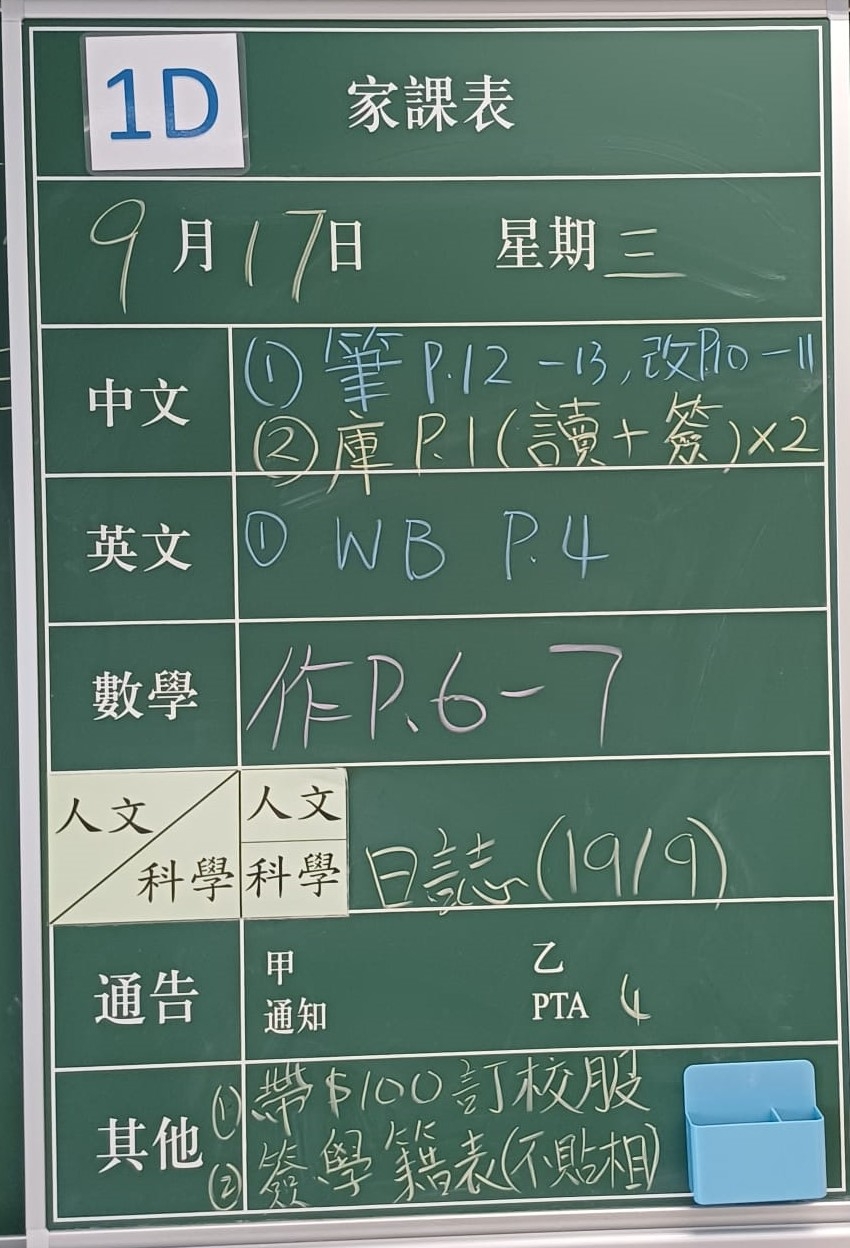 1D 家課表
9月17日 星期三
中文 ① 筆 P.12-13, 改P.10-11
② 庫 P.1 (讀+簽)×2
英文 ① WB P.4
數學 作P.6-7
人文/科學 人文
科學 日誌(19/9)
通告 甲 乙
通知 PTA 4
其他 ① 帶$100訂校服
② 簽學籍表(不貼相)